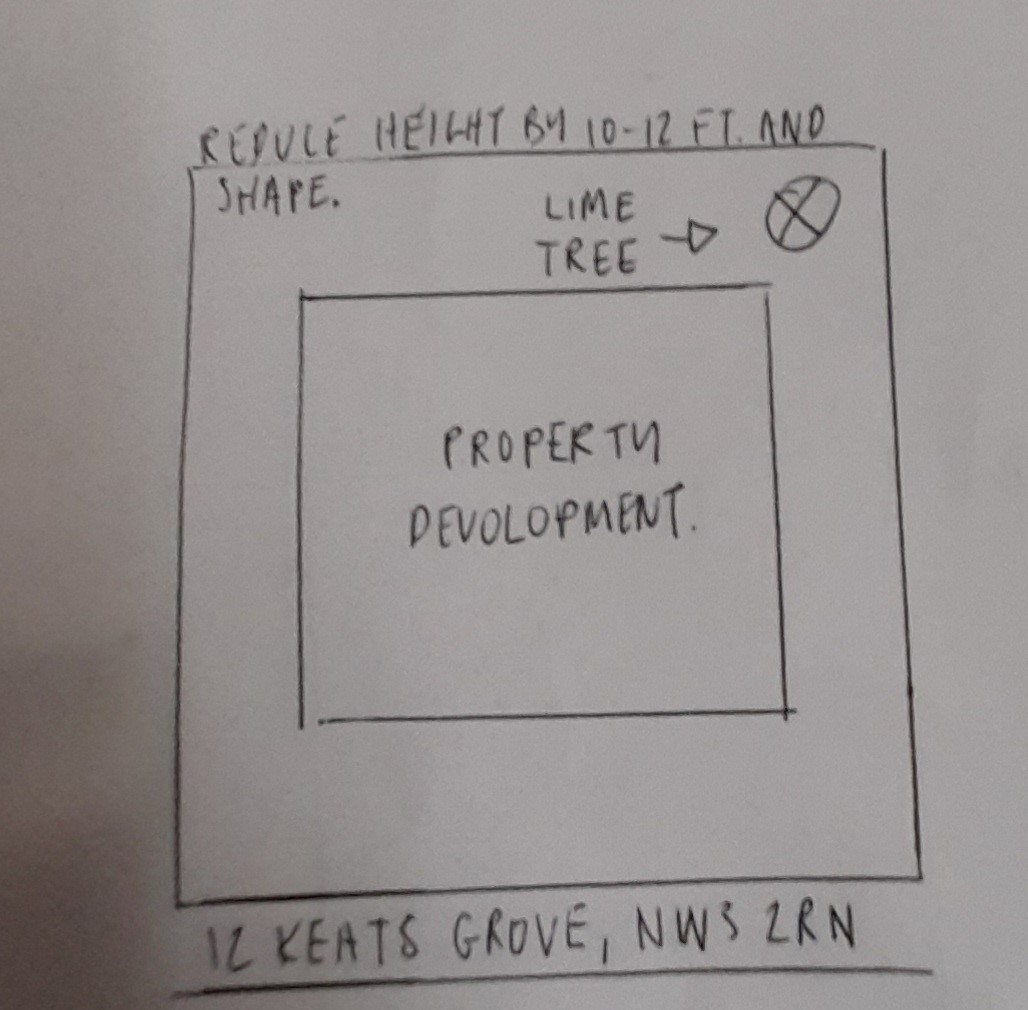 REDUCE HEIGHT BY 10-12 FT. AND
SHAPE.
LIME
TREE
PROPERTY
DEVOLOPMENT.
12 KEATS GROVE, NW3 2RN